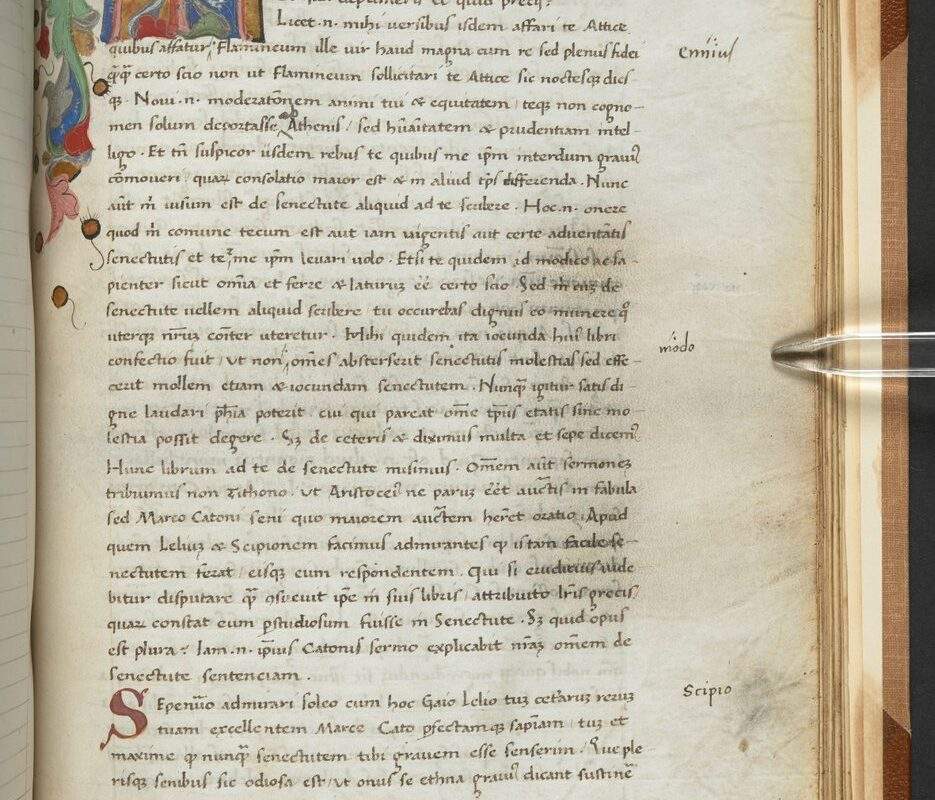 et quid precij?
Licet .n. mihi versibus isdem affari te Attice
quibus affatur Flamineum ille vir haud magna cum re sed plenus fidei
Ennius
q̃q̃ certo scio non ut Flamineum sollicitari te Attice sic noctesqꝫ dies
qꝫ. Novi .n. moderationem animi tui & equitatem / teqꝫ non cogno-
men solum deportasse Athenis / sed hũanitatem & prudentiam intel-
ligo. Et tñ suspicor iisdem rebus te quibus me ip̃m interdum gravi9
cõmoveri / quaꝝ consolatio maior est & in aliud tp̃s differenda. Nunc
aũt m̃ visum est de senectute aliquid ad te scribere. Hoc .n. onere
quod m̃ comune tecum est aut iam urgentis aut certe adventãtis
senectutis et te me ip̃m levari volo. Etsi te quidem id modice ac sa-
pienter sicut om̃ia et ferre & laturuꝫ eẽ certo scio. Sed m̃ cuꝫ de
senectute vellem aliquid scribere / tu occurebas dignus eo munere q̊
uterqꝫ nr̃uꝫ cõiter uteretur. Mihi quidem ita iocunda hui9 libri
confectio fuit / ut non om̃es absterserit senectutis molestias sed effe-
modo
cerit mollem etiam & iocundam senectutem. Nunq̃ igitur satis di-
gne laudari ph̃ia poterit / cui qui pareat om̃e tp̃us etatis sine mo-
lestia possit degere. Sꝫ de ceteris & diximus multa et sepe dicem9
Hunc librum ad te de senectute misimus. Om̃em aũt sermoneꝫ
tribuimus non Tithono / ut Aristoce9 ne paruꝫ eẽt auctis in fabula
sed Marco Catoni seni quo maiorem auctem herẽt oratio. Apud
quem Leliuꝫ & Scipionem facimus admirantes ꝙ istam facile se-
nectutem ferat / eisqꝫ eum respondentem. Qui si eruditius vide
bitur disputare q̃ ipẽ in suis libris / attribuito lr̃is grecis
quaꝝ constat eum pstudiosum fuisse in Senectute. Sꝫ quid opus
est plura? Iam .n. ip̃ius Catonis sermo explicabit nr̃aꝫ om̃em de
senectute sentenciam.
Sepenũo admirari soleo cum hoc Gaio Lelio tuꝫ ceteraꝝ reruꝫ
Scipio
tuam excellentem Marce Cato pfectamqꝫ sapiam / tuꝫ et
maxime ꝙ nunq̃ senectutem tibi gravem esse senserim. Que ple-
risqꝫ senibus sic odiosa est / ut onus se ethna gravi9 dicant sustinẽ